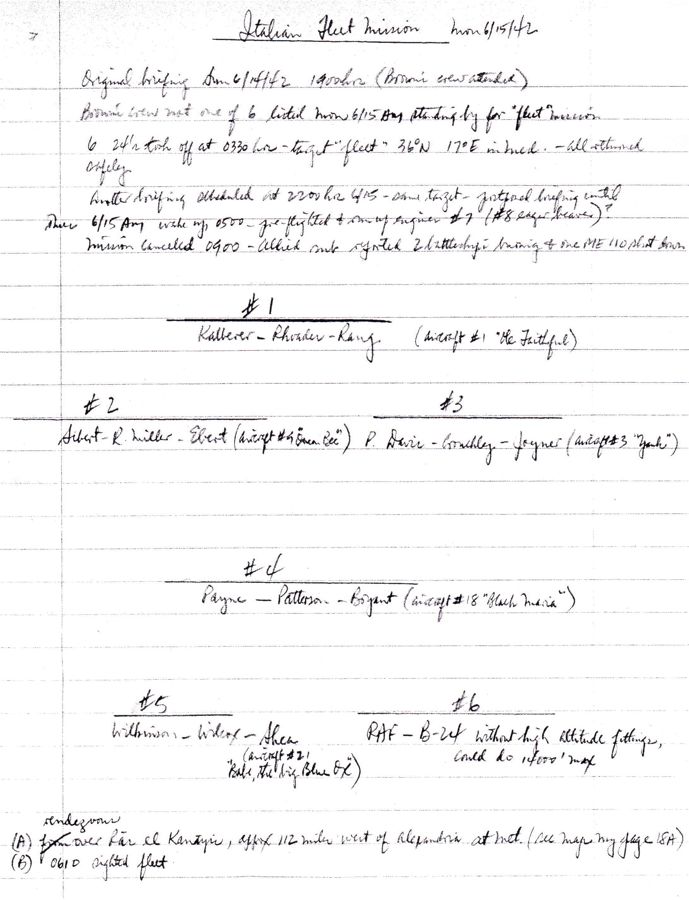 Italian Fleet Mission Mon 6/15/42
Original briefing Sun 6/14/42 1900 hr (Brown's crew attended)
Brown's crew not one of 6 listed Mon 6/15 Am standing by for "fleet" mission
6 24's took off at 0330 hr - target "fleet" 36°N 17°E in Med. - All returned
safely
Another briefing scheduled at 2200 hr 6/15 - same target - postponed briefing until
6/15 Am wake up 0500 - pre-flighted & run up engines #7 (#8 eager beaver)?
Mission cancelled 0900 - Allied sub reported 2 battleships burning & one ME 110 shot down
#1
Kalberer - Rhoades - Rang (aircraft #1 "Ole Faithful)
#2
#3
- R. Miller - Ebert (aircraft #9 "Queen Bee") P. Davis - Crouchley - Joyner (aircraft #3 "Yank")
#4
Payne - Patterson - Bryant (aircraft #18 "Black Maria")
#5
#6
Wilkinson - Wilcox - Shea
(aircraft #21
"Babe, the big Blue Ox")
RAF - B-24 without high altitude fittings,
could do 14000' max
rendezvous
(A) over Râs el Kanâyis, approx 112 miles west of Alexandria at met. (see map my page 18A)
(B) 0610 sighted fleet